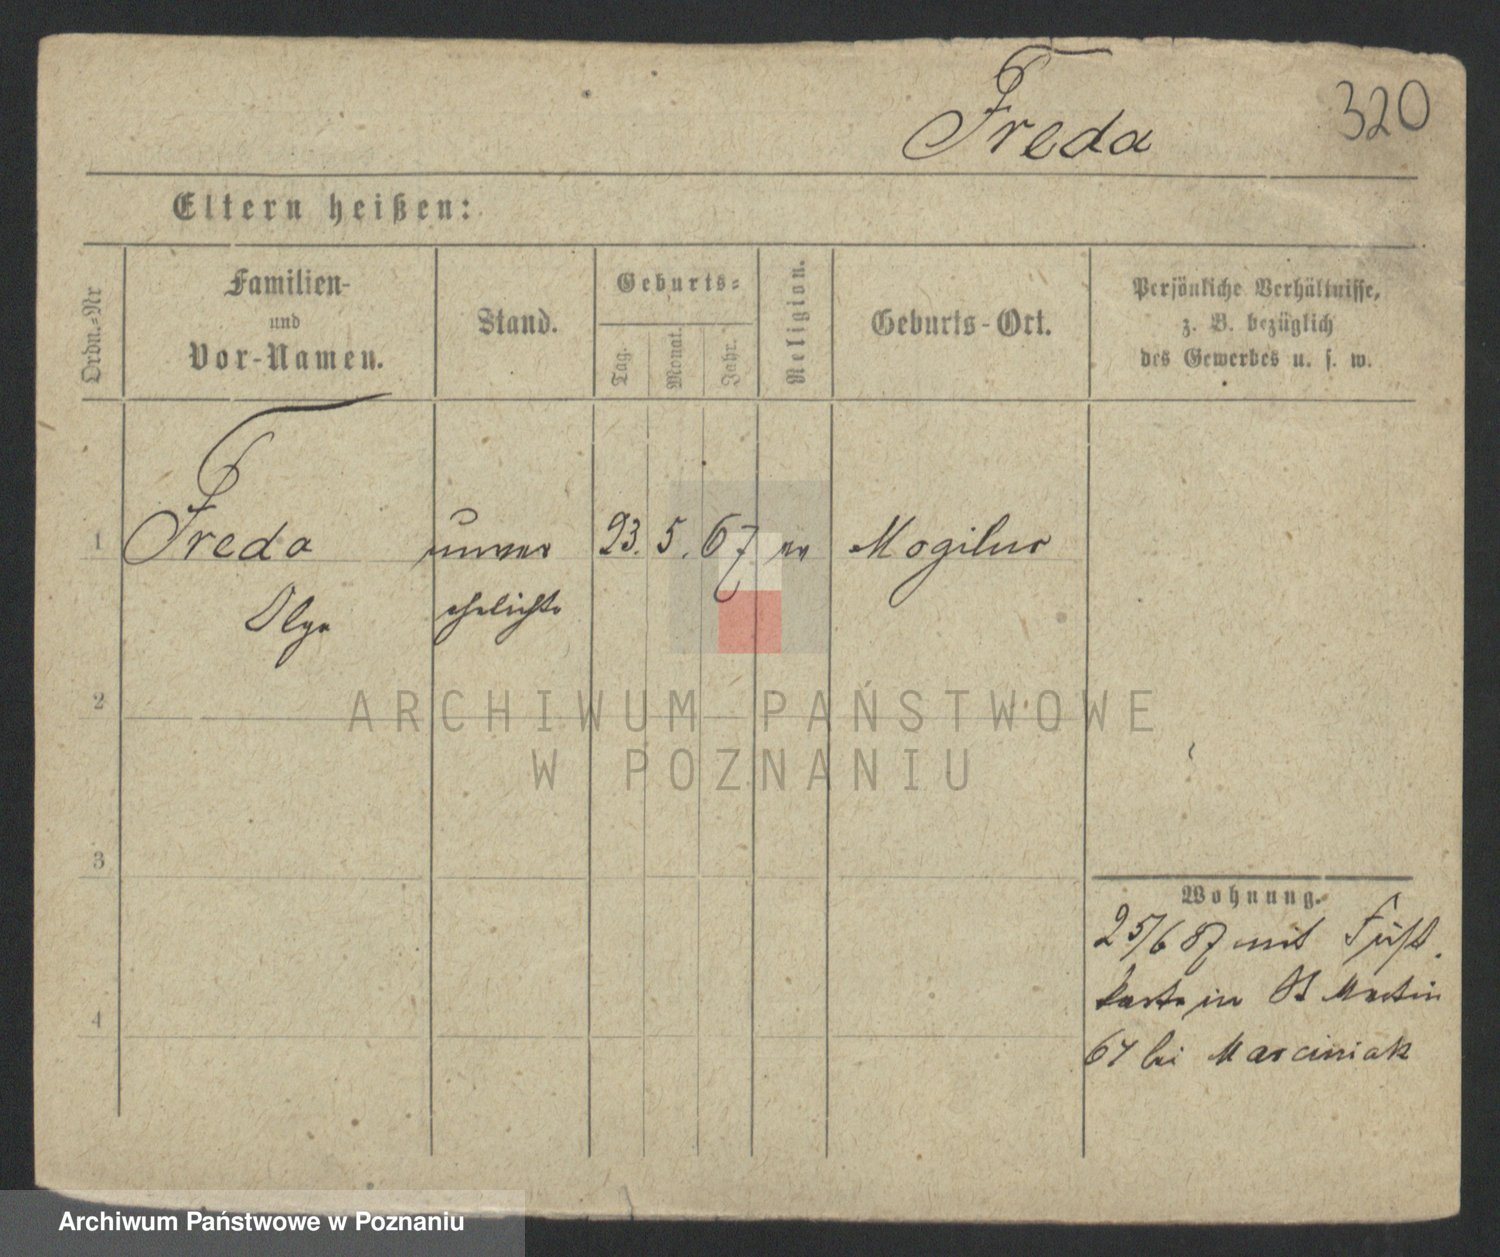 Freda
320
Eltern heißen:
Ordn.=Nr
Familien-
und
Vor-Namen.
Stand.
Geburts=
Tag.
Monat.
Jahr.
Religion.
Geburts-Ort.
Persönliche Verhältnisse,
z. B. bezüglich
des Gewerbes u. s. w.
1 Freda unver 23. 5. 67 ev Mogilno
Olga ehelichte
2
ARCHIWUM PAŃSTWOWE
W POZNANIU
3
Wohnung.
25/6 87 mit
karte in St Martin
4
67 bei Marciniak
Archiwum Państwowe w Poznaniu